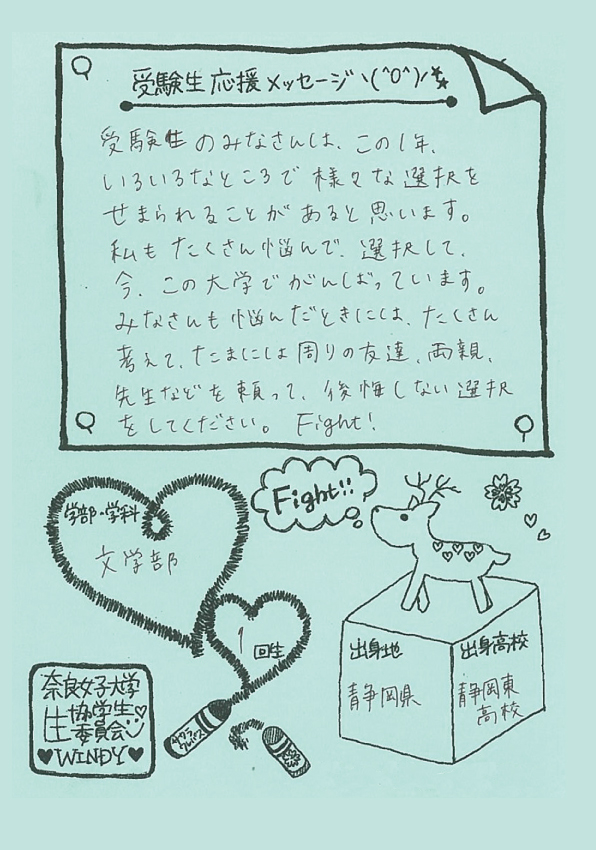 受験生応援メッセージヽ(^o^)ﾉ
受験生のみなさんは、この1年、
いろいろなところで様々な選択を
せまられることがあると思います。
私もたくさん悩んで、選択して、
今、この大学でがんばっています。
みなさんも悩んだときには、たくさん
考えて、たまには周りの友達、両親、
先生などを頼って、後悔しない選択
をしてください。 Fight!
Fight!!
学部・学科
文学部
1回生
出身地
静岡県
出身高校
静岡東
高校
奈良女子大学
生協学生
委員会
WINDY
サクラ
クレパス